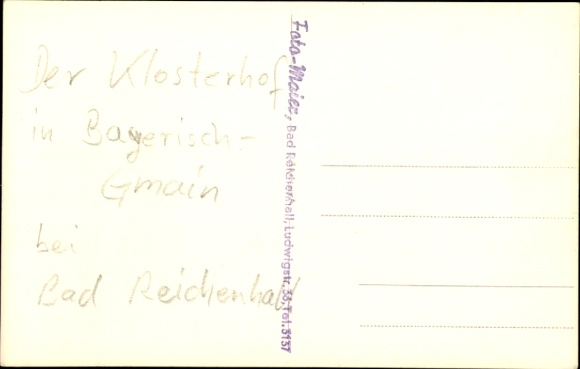 Der Klosterhof
in Bayerisch-
Gmain
bei
Bad Reichenhall
Foto-Maier, Bad Reichenhall, Ludwigstr. 33, Tel. 3137